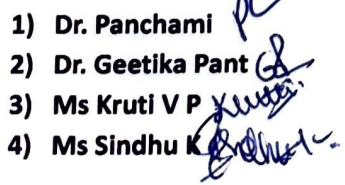 1) Dr. Panchami
2) Dr. Geetika Pant
3) Ms Kruti V P Kruti
4) Ms Sindhu K Sindhu K